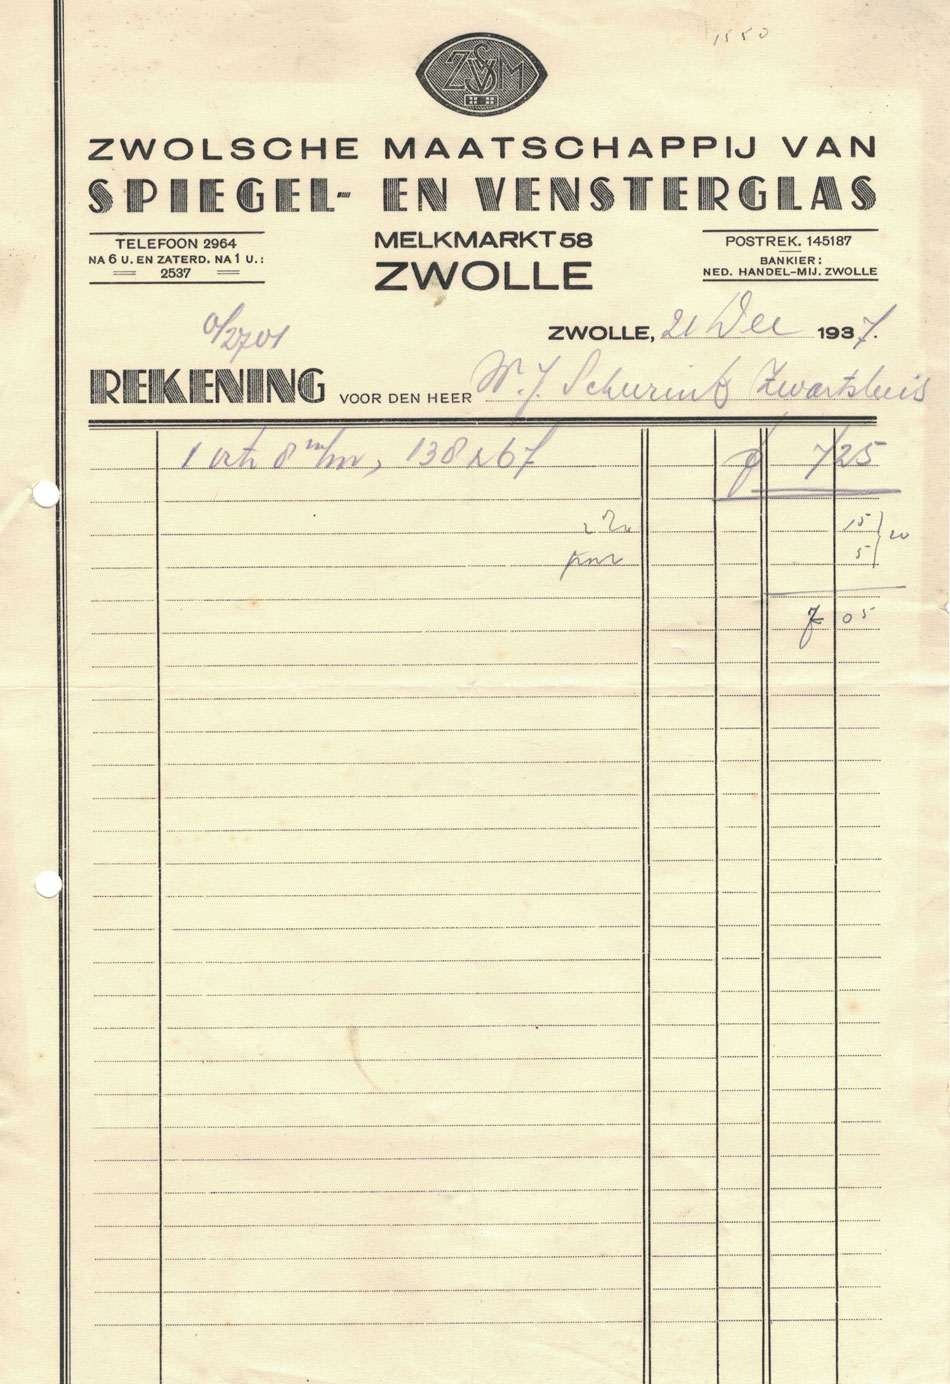 1550
ZVSM
ZWOLSCHE MAATSCHAPPIJ VAN
SPIEGEL- EN VENSTERGLAS
TELEFOON 2964
NA 6 U. EN ZATERD. NA 1 U.:
2537
MELKMARKT 58
ZWOLLE
POSTREK. 145187
BANKIER:
NED. HANDEL-MIJ. ZWOLLE
0/2701
ZWOLLE, 21 Dec 1937.
REKENING VOOR DEN HEER W. J. Schurink Zwartsluis
1 8 m/m, 138 x 67 f 7 25
2% 15
5 20
7 05